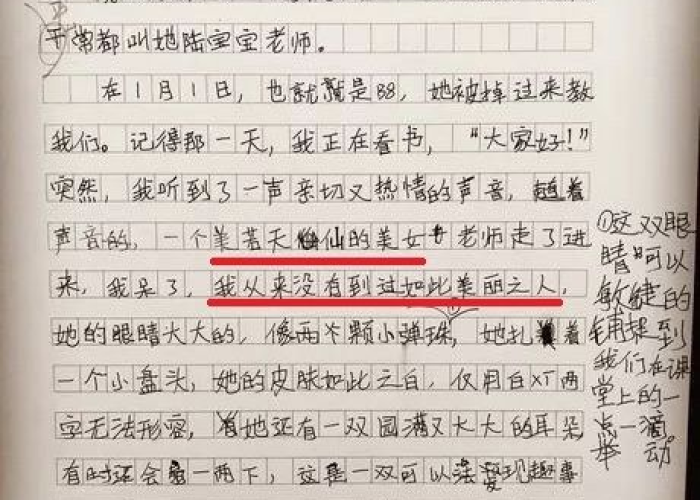 平常都叫她陆宝宝老师。
在1月1日，也就是B8，她被掉过来教
我们。记得那一天，我正在看书，“大家好！”
突然，我听到了一声亲切又热情的声音，随着
声音的，一个美若天仙的美女老师走了进
来，我呆了，我从来没有到过如此美丽之人，
她的眼睛大大的，像两个颗小弹珠，她扎着
一个小盘头，她的皮肤如此之白，仅用白XT两
字无法形容，她还有一双圆满又大大的耳朵，
有时还会一两下，这是一双可以发现趣事
①这双眼
睛可以
敏键的
捕捉到
我们在课
堂上的一
点一滴
举动